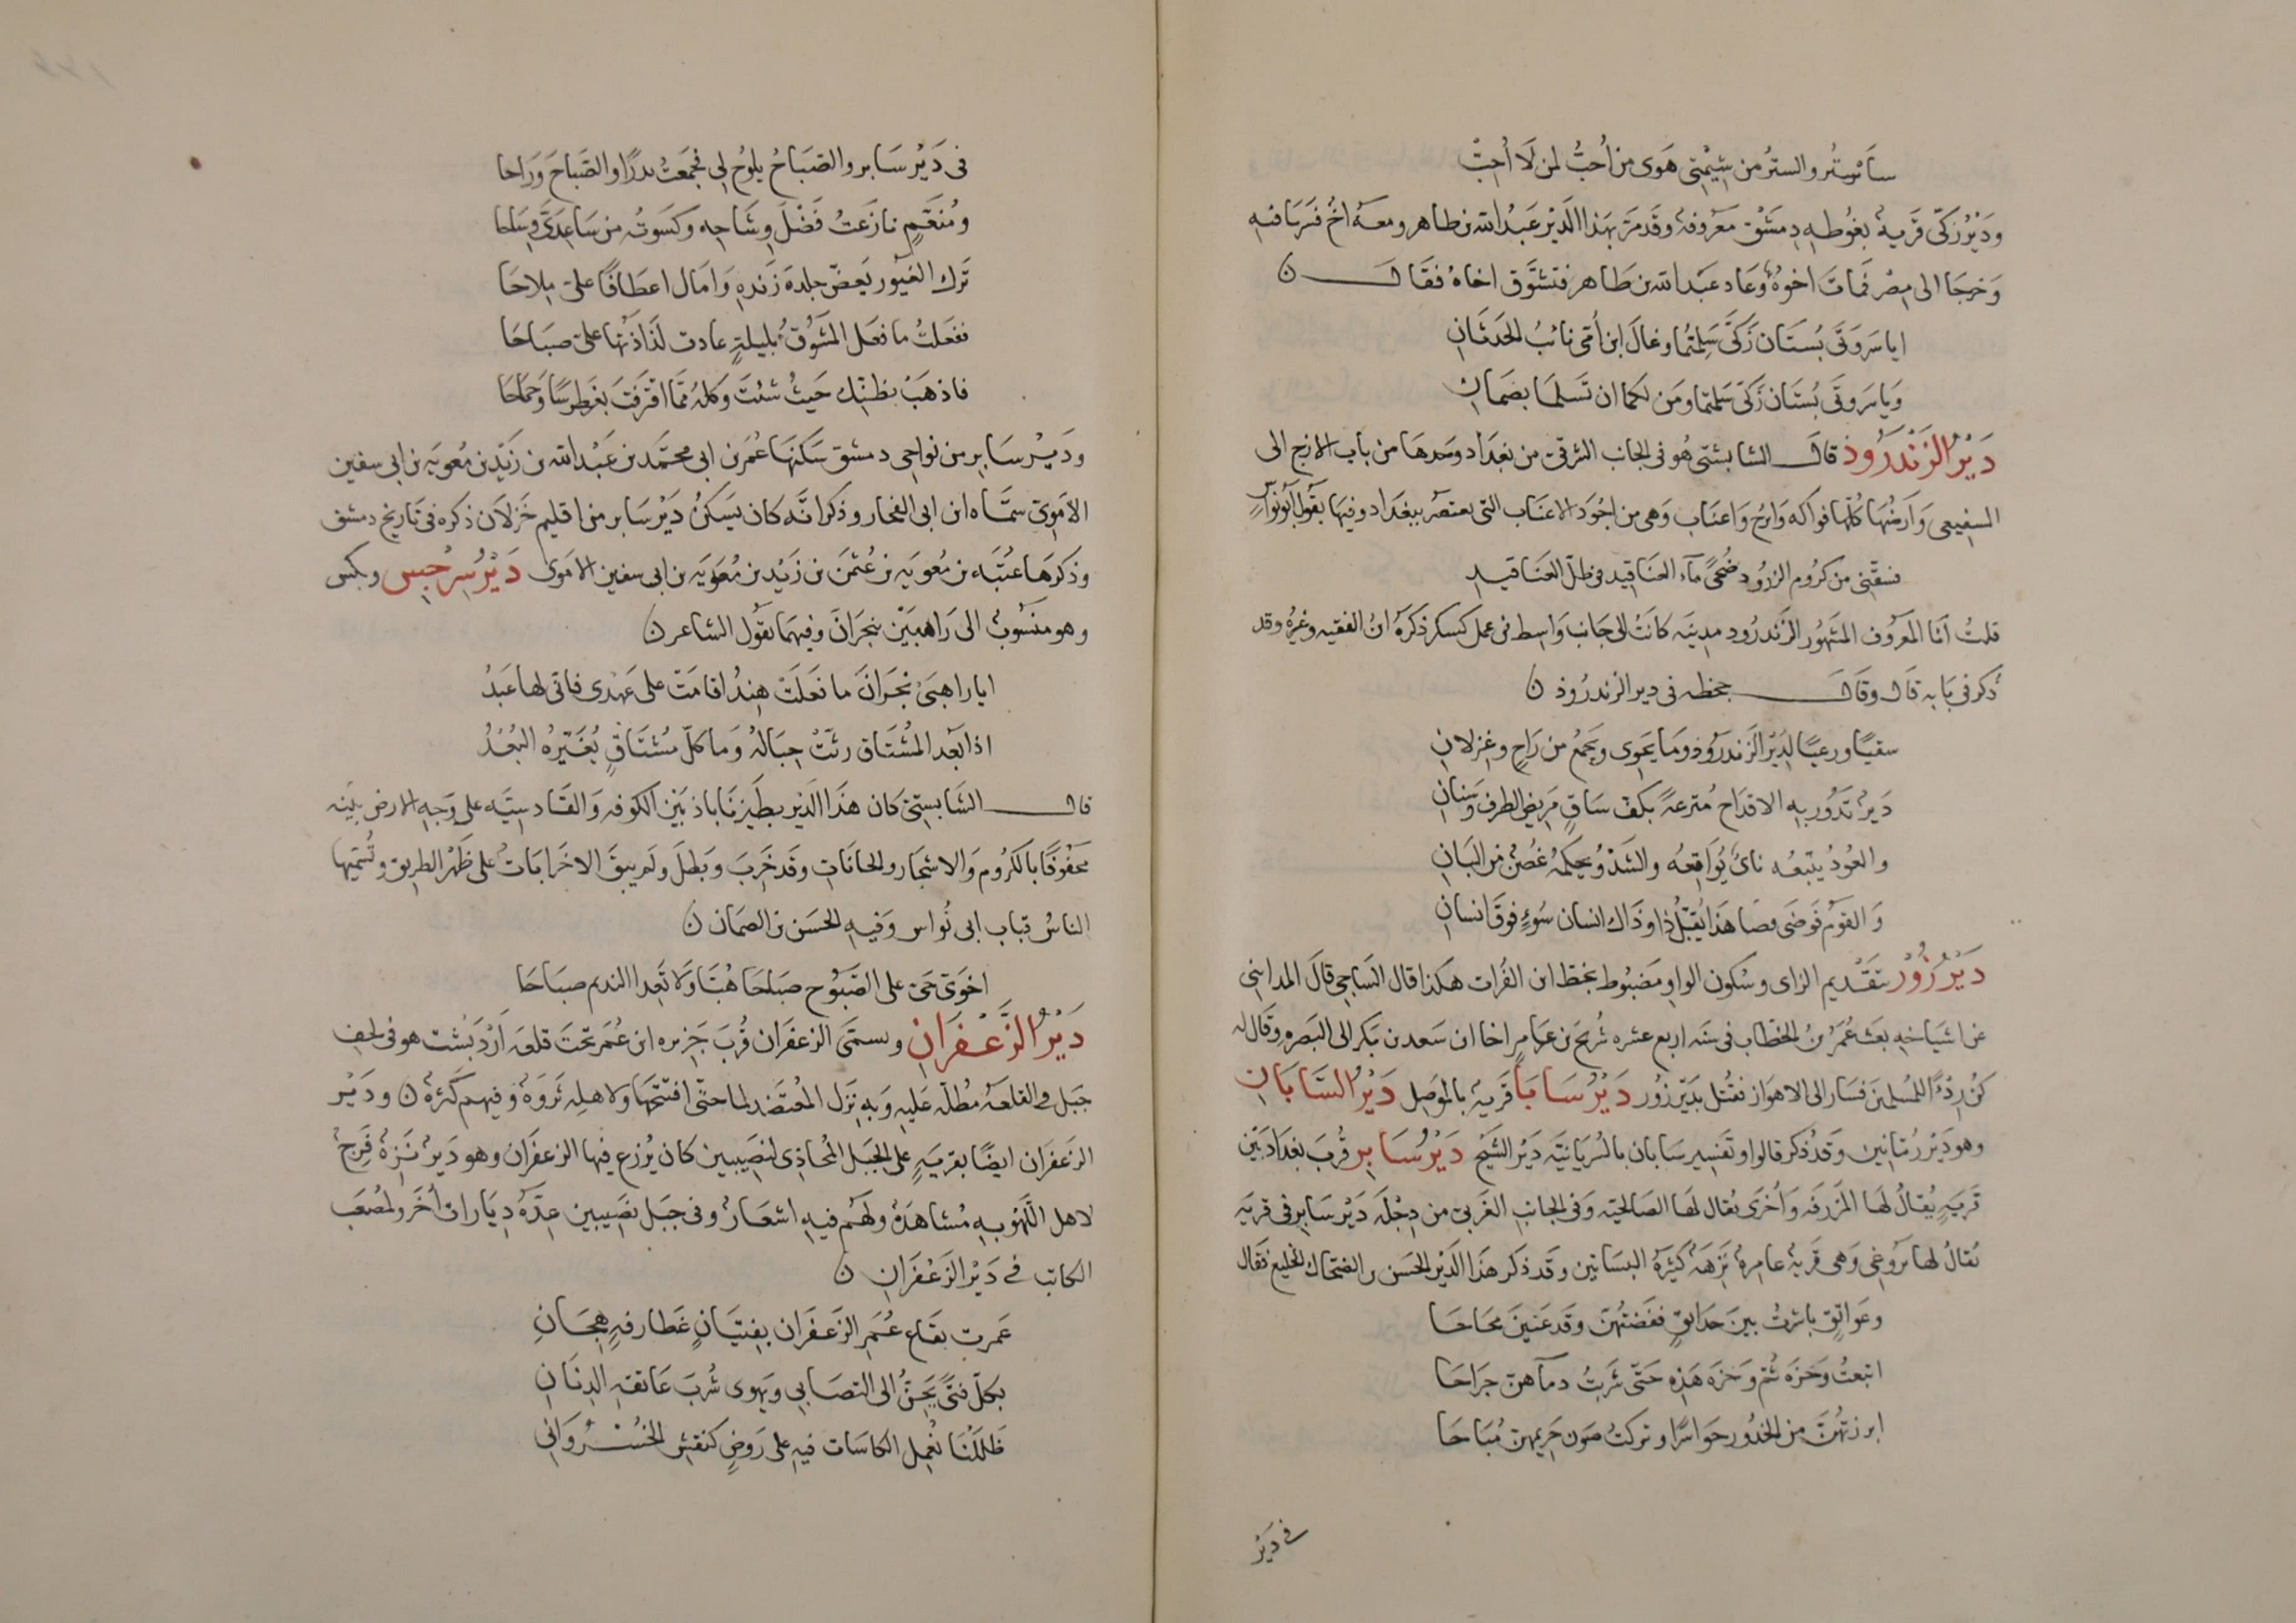 سأستر والستر من شيمتي هوى من أحب لمن لا أحب
ودير زكى قرية بغوطه دمشق معروفة وقد مر بهذا الدير عبد الله بن طاهر ومعه اخ فشربا فيه
وخرجا الى مصر فمات اخوه وعاد عبد الله بن طاهر فتشوق اخاه فقال
ايا سروتى بستان زكى سلمتما وغال ابن أمى نائب الحدثان
ويا سروتى بستان زكى سلمتما ومن لكما ان تسلما بضمان
دير الزندرود قال الشابشتى هو فى الجانب الشرقى من بغداد وحدها من باب الازج الى
السفيعى وارضها كلها فواكه واترج واعناب وهى من اجود الاعناب التى يعتصر ببغداد وفيها يقول ابو نواس
فسقنى من كروم الزرود ضحى ماء العناقيد فى ظل العناقيد
قلت انا المعروف المشهور الزندرود مدينه كانت الى جانب واسط فى عمل كسكر ذكره ابن الفقيه وغيره وقد
ذكر فى بابه قال وقال جحظه فى دير الزندروذ
سقيا ورعيا لدير الزندروذ وما يحوى ويجمع من راح وغزلان
دير تدور به الاقداح مترعة بكف ساق مريض الطرف وسنان
والعود يتبعه ناى يوافقه والشدو يحكمه غصن من البان
والقوم فوضى فضا هذا يقبل ذا وذاك انسان سوء فوق انسان
دير زور بتقديم الزاى وسكون الواو مضبوط بخط ابن الفرات هكذا قال الساجى قال المداينى
عن اشياخه بعث عمر بن الخطاب فى سنه اربع عشره شريح بن عامر اخا ابن سعد بن بكر الى البصره وقال له
كن ردءا للمسلمين فسار الى الاهواز فقتل بدير زور دير سابا قرية بالموصل دير السابان
وهو دير رمانين وقد ذكر قالوا وتفسير سابان بالسريانيه دير الشيخ دير سابر قرب بغداد بين
قرية يقال لها المزرفه واخرى يقال لها الصالحيه وفى الجانب الغربى من دجلة دير سابر فى قريه
يقال لها بروغى وهى قرية عامرة نزهة كثيرة البساتين وقد ذكر هذا الدير الحسن بن الضحاك الخليع فقال
وعواتق باشرت بين حدائق ففضضتهن وقد عنين صحاحا
اتبعت وخزة تلك وخزه هذه حتى شربت دماهن جراحا
ابرزتهن من الخدور حواسرا وتركت صون حريمهن مباحا
فى دير
فى دير سابر والصباح يلوح لى فجمعت بدرا والصباح وراحا
ومنعم نازعت فضل وشاحه وكسوته من ساعدى وشاحا
ترك الغيور يعض جلدة زنده وامال اعطافا على ملاحا
ففعلت ما فعل المشوق بليلة عادت لذاذتها على صباحا
فاذهب بظنك حيث شئت وكله مما اقترفت تغطرسا وجماحا
ودير سابر من نواحى دمشق سكنها عمر بن ابى محمد بن عبد الله بن زيد بن معويه بن ابى سفين
الاموى سماه ابن ابى الفخار وذكر انه كان يسكن دير سابر من اقليم خولان ذكره فى تاريخ دمشق
وذكرها عتبه بن معويه بن عثمن بن زيد بن معويه بن ابى سفين الاموى دير سرجيس وبكس
وهو منسوب الى راهبين بنجران وفيهما يقول الشاعر
ايا راهبى نجران ما فعلت هند اقامت على عهدى فانى لها عبد
اذا بعد المشتاق رثت حباله وما كل مشتاق يغيره البعد
قال الشابستى كان هذا الدير بطيزناباذ بين الكوفه والقادسيه على وجه الارض بينه
محفوفا بالكروم والاشجار والحانات وقد خرب وبطل ولم يبق الا خرابات على ظهر الطريق وتسميها
الناس قباب ابى نواس وفيه الحسن بن الضحاك
اخوى حى على الصبوح صباحا هبا ولا تعدا النديم صباحا
دير الزعفران ويسمى الزعفران قرب جزيره ابن عمر تحت قلعه اردبشت هو فى لحف
جبل والقلعة مطلة عليه وبه نزل المعتضد لما حتى افتتحها ولاهله ثروة وفيهم كثرة ودير
الزعفران ايضا بقرية على الجبل المحاذى لنصيبين كان يزرع فيها الزعفران وهو دير نزه فرج
لاهل اللهو به مشاهدة ولهم فيه اشعار وفى جبل نصيبين عدة ديارات اخر ولمصعب
الكاتب فى دير الزعفران
عمرت بقاع عمر الزعفران بفتيان غطارفة هجان
بكل فتى يحن الى التصابى ويهوى شرب عاتقة الدنان
ظللنا نعمل الكاسات فيه على روض كنقش الخسروانى